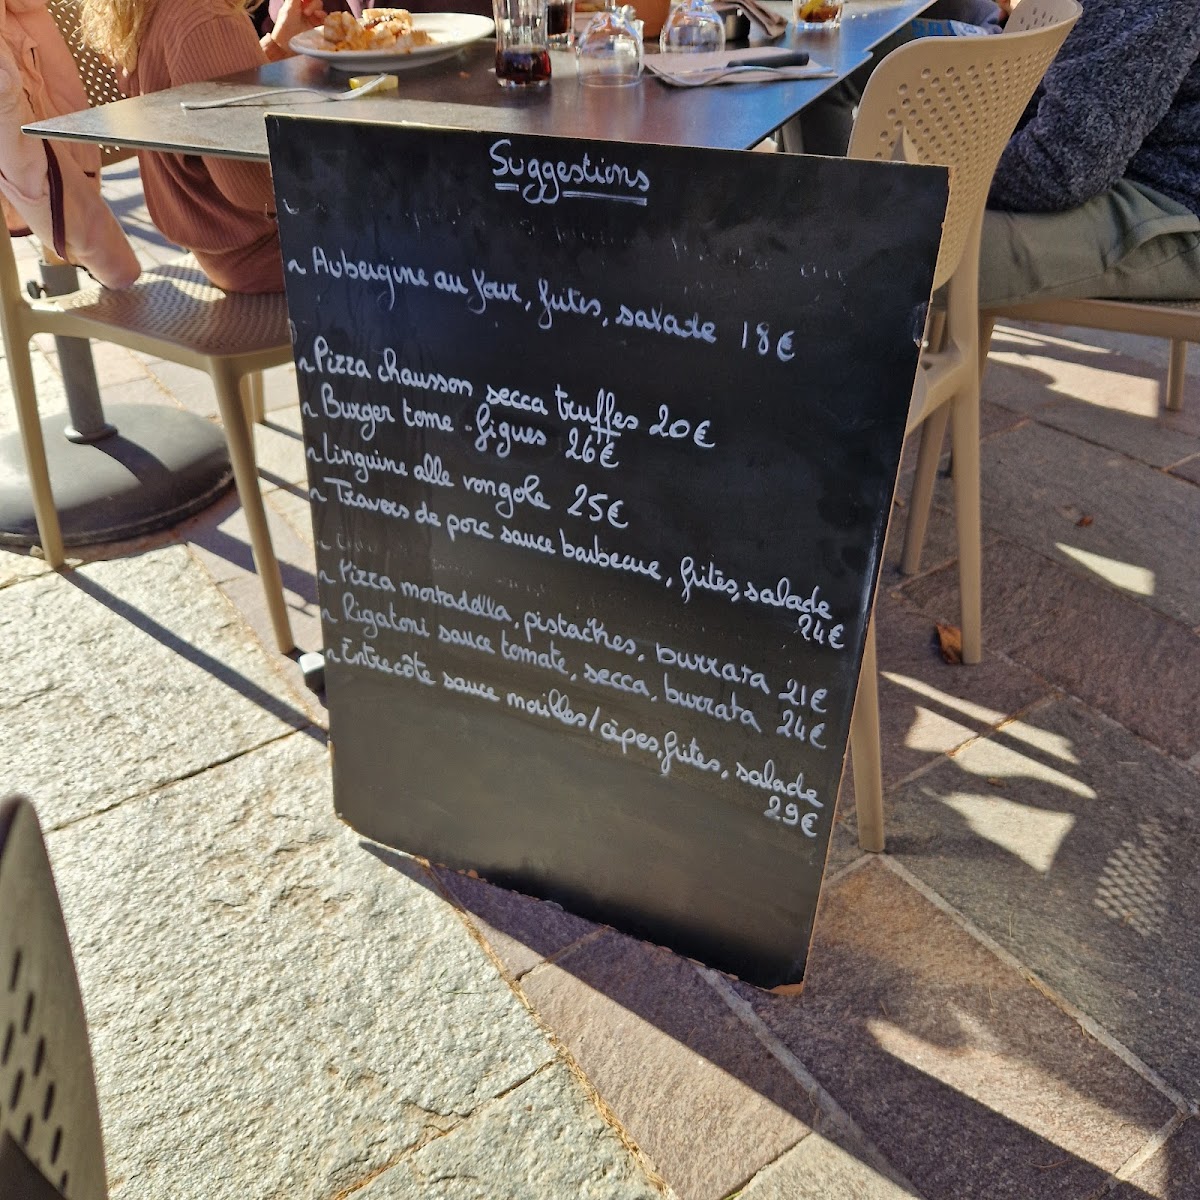 Suggestions
~ Aubergine au four, frites, salade 18€
~ Pizza chausson secca truffes 20€
~ Burger tome - figues 26€
~ Linguine alle vongole 25€
~ Travers de porc sauce barbecue, frites, salade
24€
~ Pizza mortadella, pistaches, burrata 21€
~ Rigatoni sauce tomate, secca, burrata 24€
~ Entrecôte sauce morilles/cèpes, frites, salade
29€